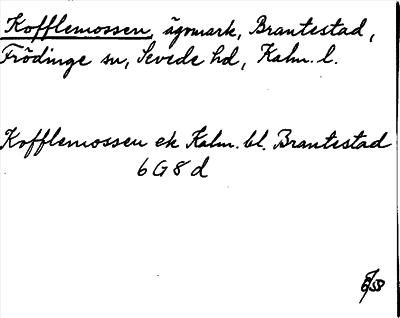 Kofflemossen, ägomark, Brantestad,
Frödinge sn, Sevede hd, Kalm. l.
Kofflemossen ek Kalm. bl. Brantestad
6 G 8 d